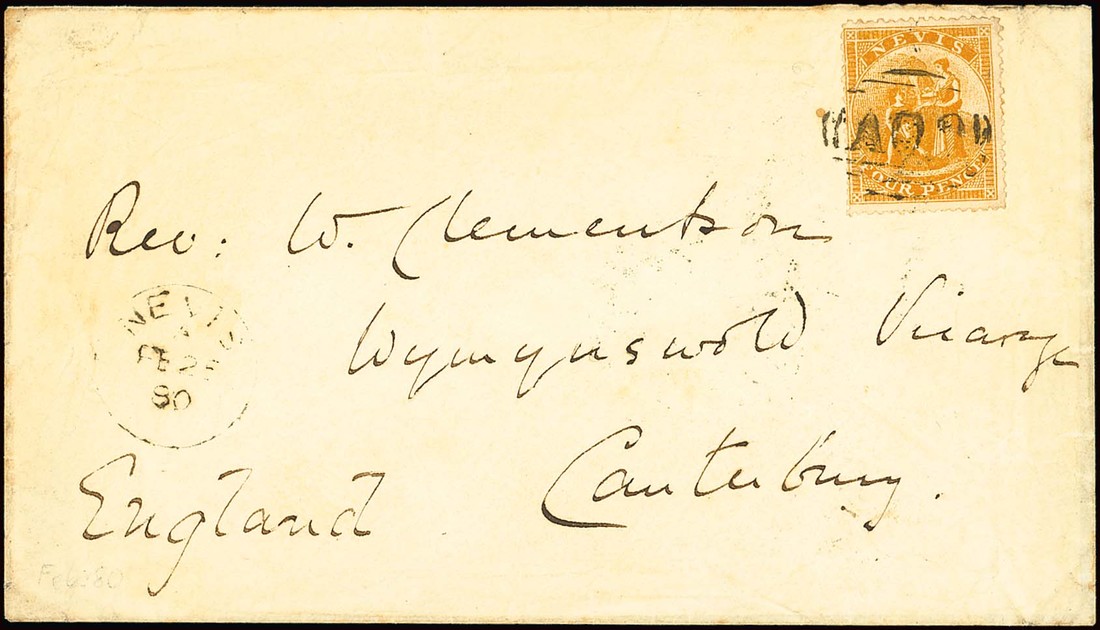 NEVIS
A09
FOUR PENCE
Rev: W. Clementson
Wymynswold Vicarage
Canterbury.
England
NEVIS
A
FE 25
80
Feb 80